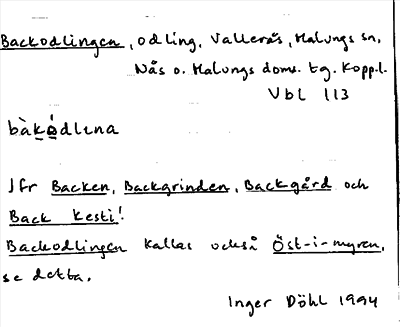 Backodlingen, odling, Vallerås, Malungs sn,
Nås o. Malungs doms. tg. Kopp.l.
Vbl 113
bàkódlina
Jfr Backen, Backgrinden, Backgård och
Back Kesti!
Backodlingen kallas också Öst-i-myren,
se detta.
Inger Döhl 1994